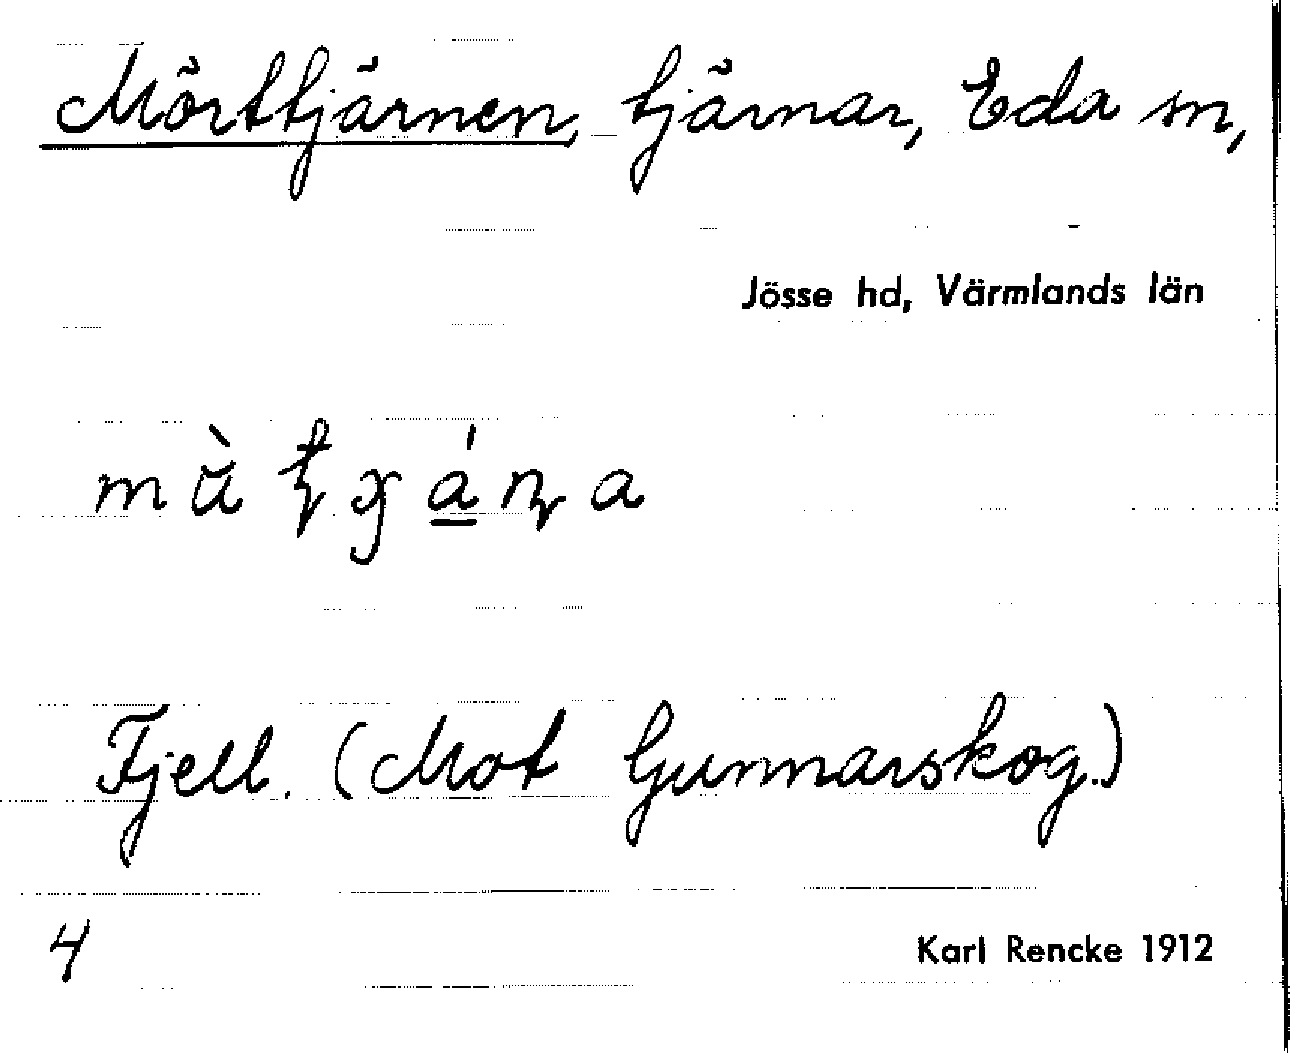 Mörttjärnen, tjärnar, Eda sn,
Jösse hd, Värmlands län
Fjell. (Mot Gunnarskog.)
4 Karl Rencke 1912